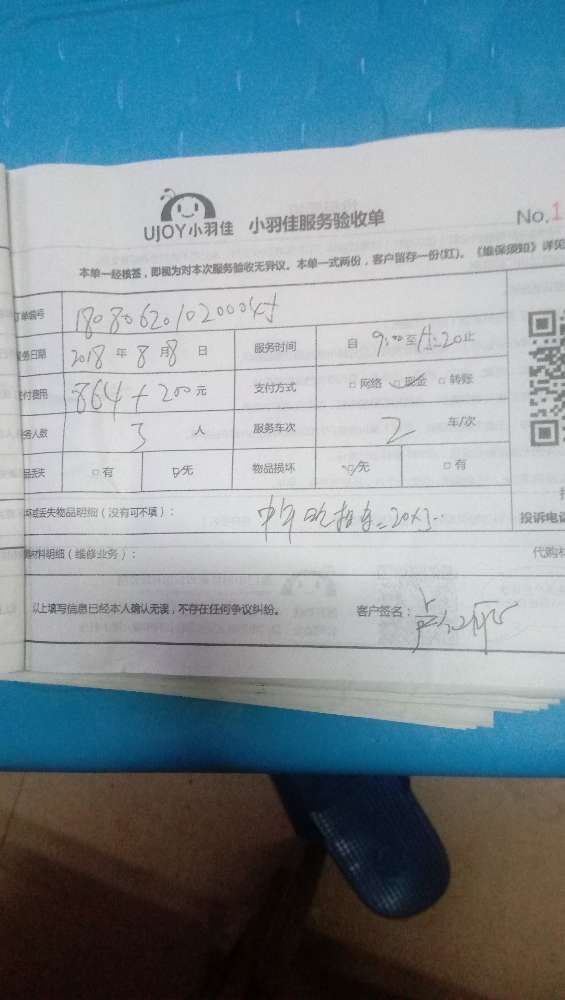 UJOY小羽佳 小羽佳服务验收单 No.1
本单一经核签，即视为对本次服务验收无异议。本单一式两份，客户留存一份(红)。《维保须知》详见
订单编号
服务日期 2018 年 8 月 8 日 服务时间 自 9:00 至 :20 止
支付费用 864+200 元 支付方式 □网络 ☑现金 □转账
服务人数 3 人 服务车次 2 车/次
品丢失 □有 ☑无 物品损坏 ☑无 □有
坏或丢失物品明细（没有可不填）： 中午 20×3
投诉电话
材料明细（维修业务）： 代购
以上填写信息已经本人确认无误，不存在任何争议纠纷。 客户签名：